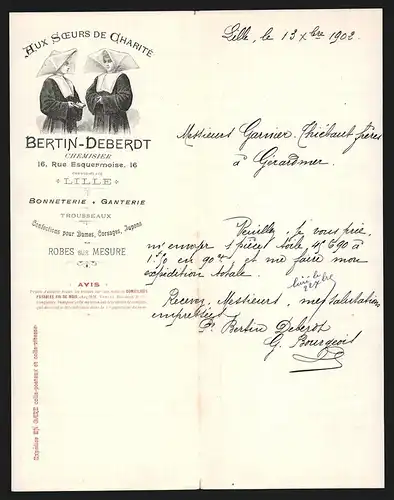 AUX SŒURS DE CHARITÉ
BERTIN-DEBERDT
CHEMISIER
16, Rue Esquermoise, 16
LILLE
BONNETERIE • GANTERIE
TROUSSEAUX
Confections pour Dames, Corsages, Jupons
ROBES SUR MESURE
AVIS
PAYABLES FIN DE MOIS
Lille, le 13 Xbre 1902
Messieurs Garnier, Thiébaut frères
à Gérardmer
Veuillez, je vous prie,
m'envoyer 1 pièce toile, 4F90 à
1F50 en 90 et me faire mon
expédition totale.
Recevez, Messieurs, mes salutations
empressées
Pr Bertin Deberdt
G. Bourgeois